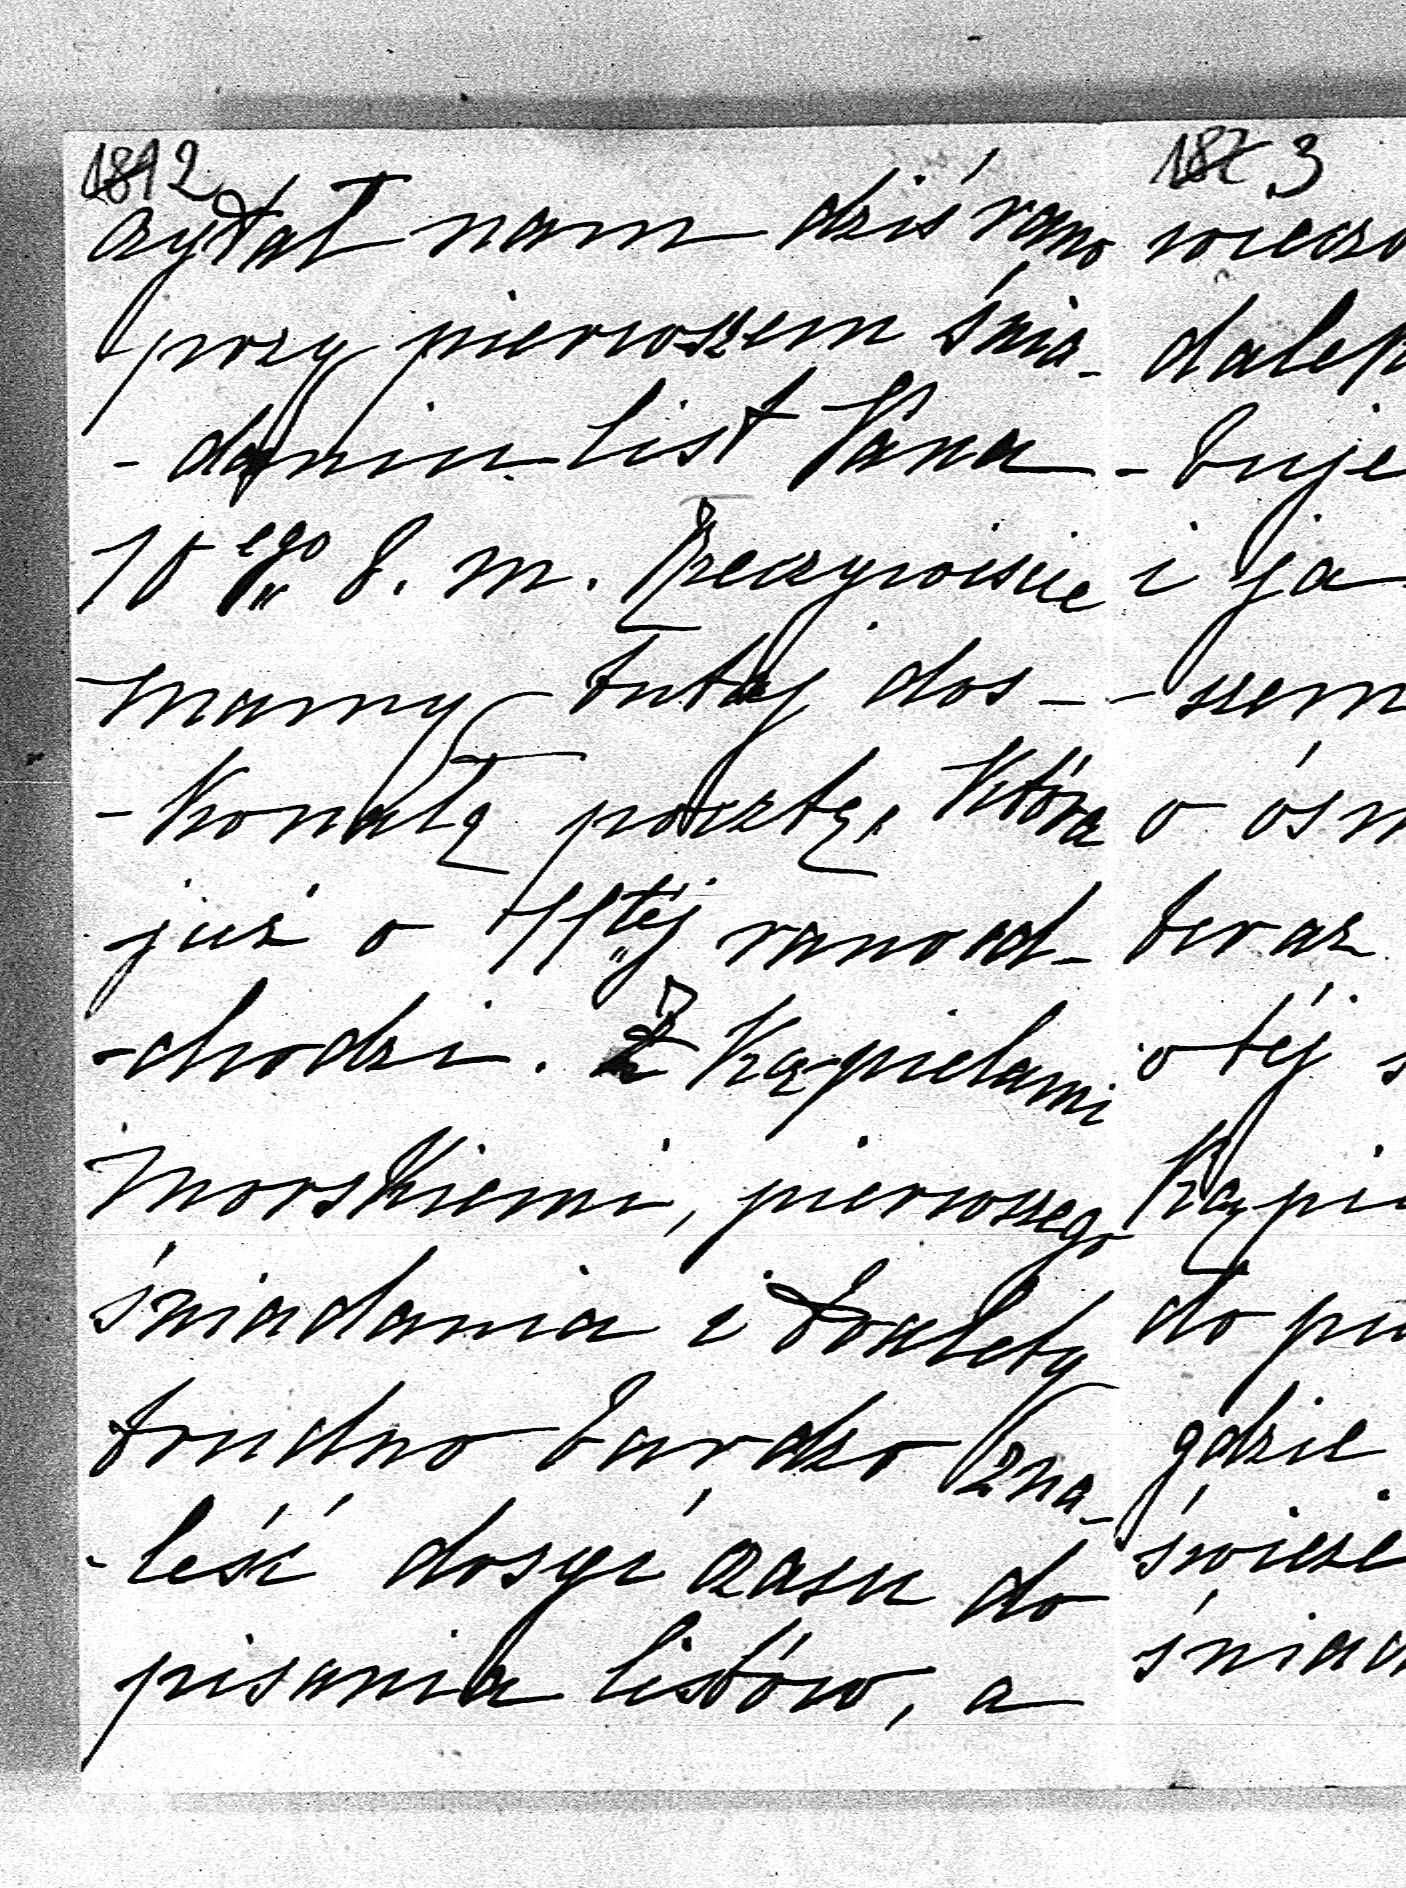 2
czytał nam dziś rano
przy pierwszem śnia-
-daniu list Pana
10ego b. m. Rzeczywiście
mamy tutaj dos-
-konałą pocztę, która
już o 11tej rano od-
-chodzi. Z Kąpielami
morskiemi, pierwszego
śniadania i toalety
trudno bardzo zna-
-leść dosyć czasu do
pisania listów, a
3
wieczo
dalek
-buje
i ja
-szem
o ósm
teraz
o téj s
Kąpi
do pi
gdzie
świeże
śniad